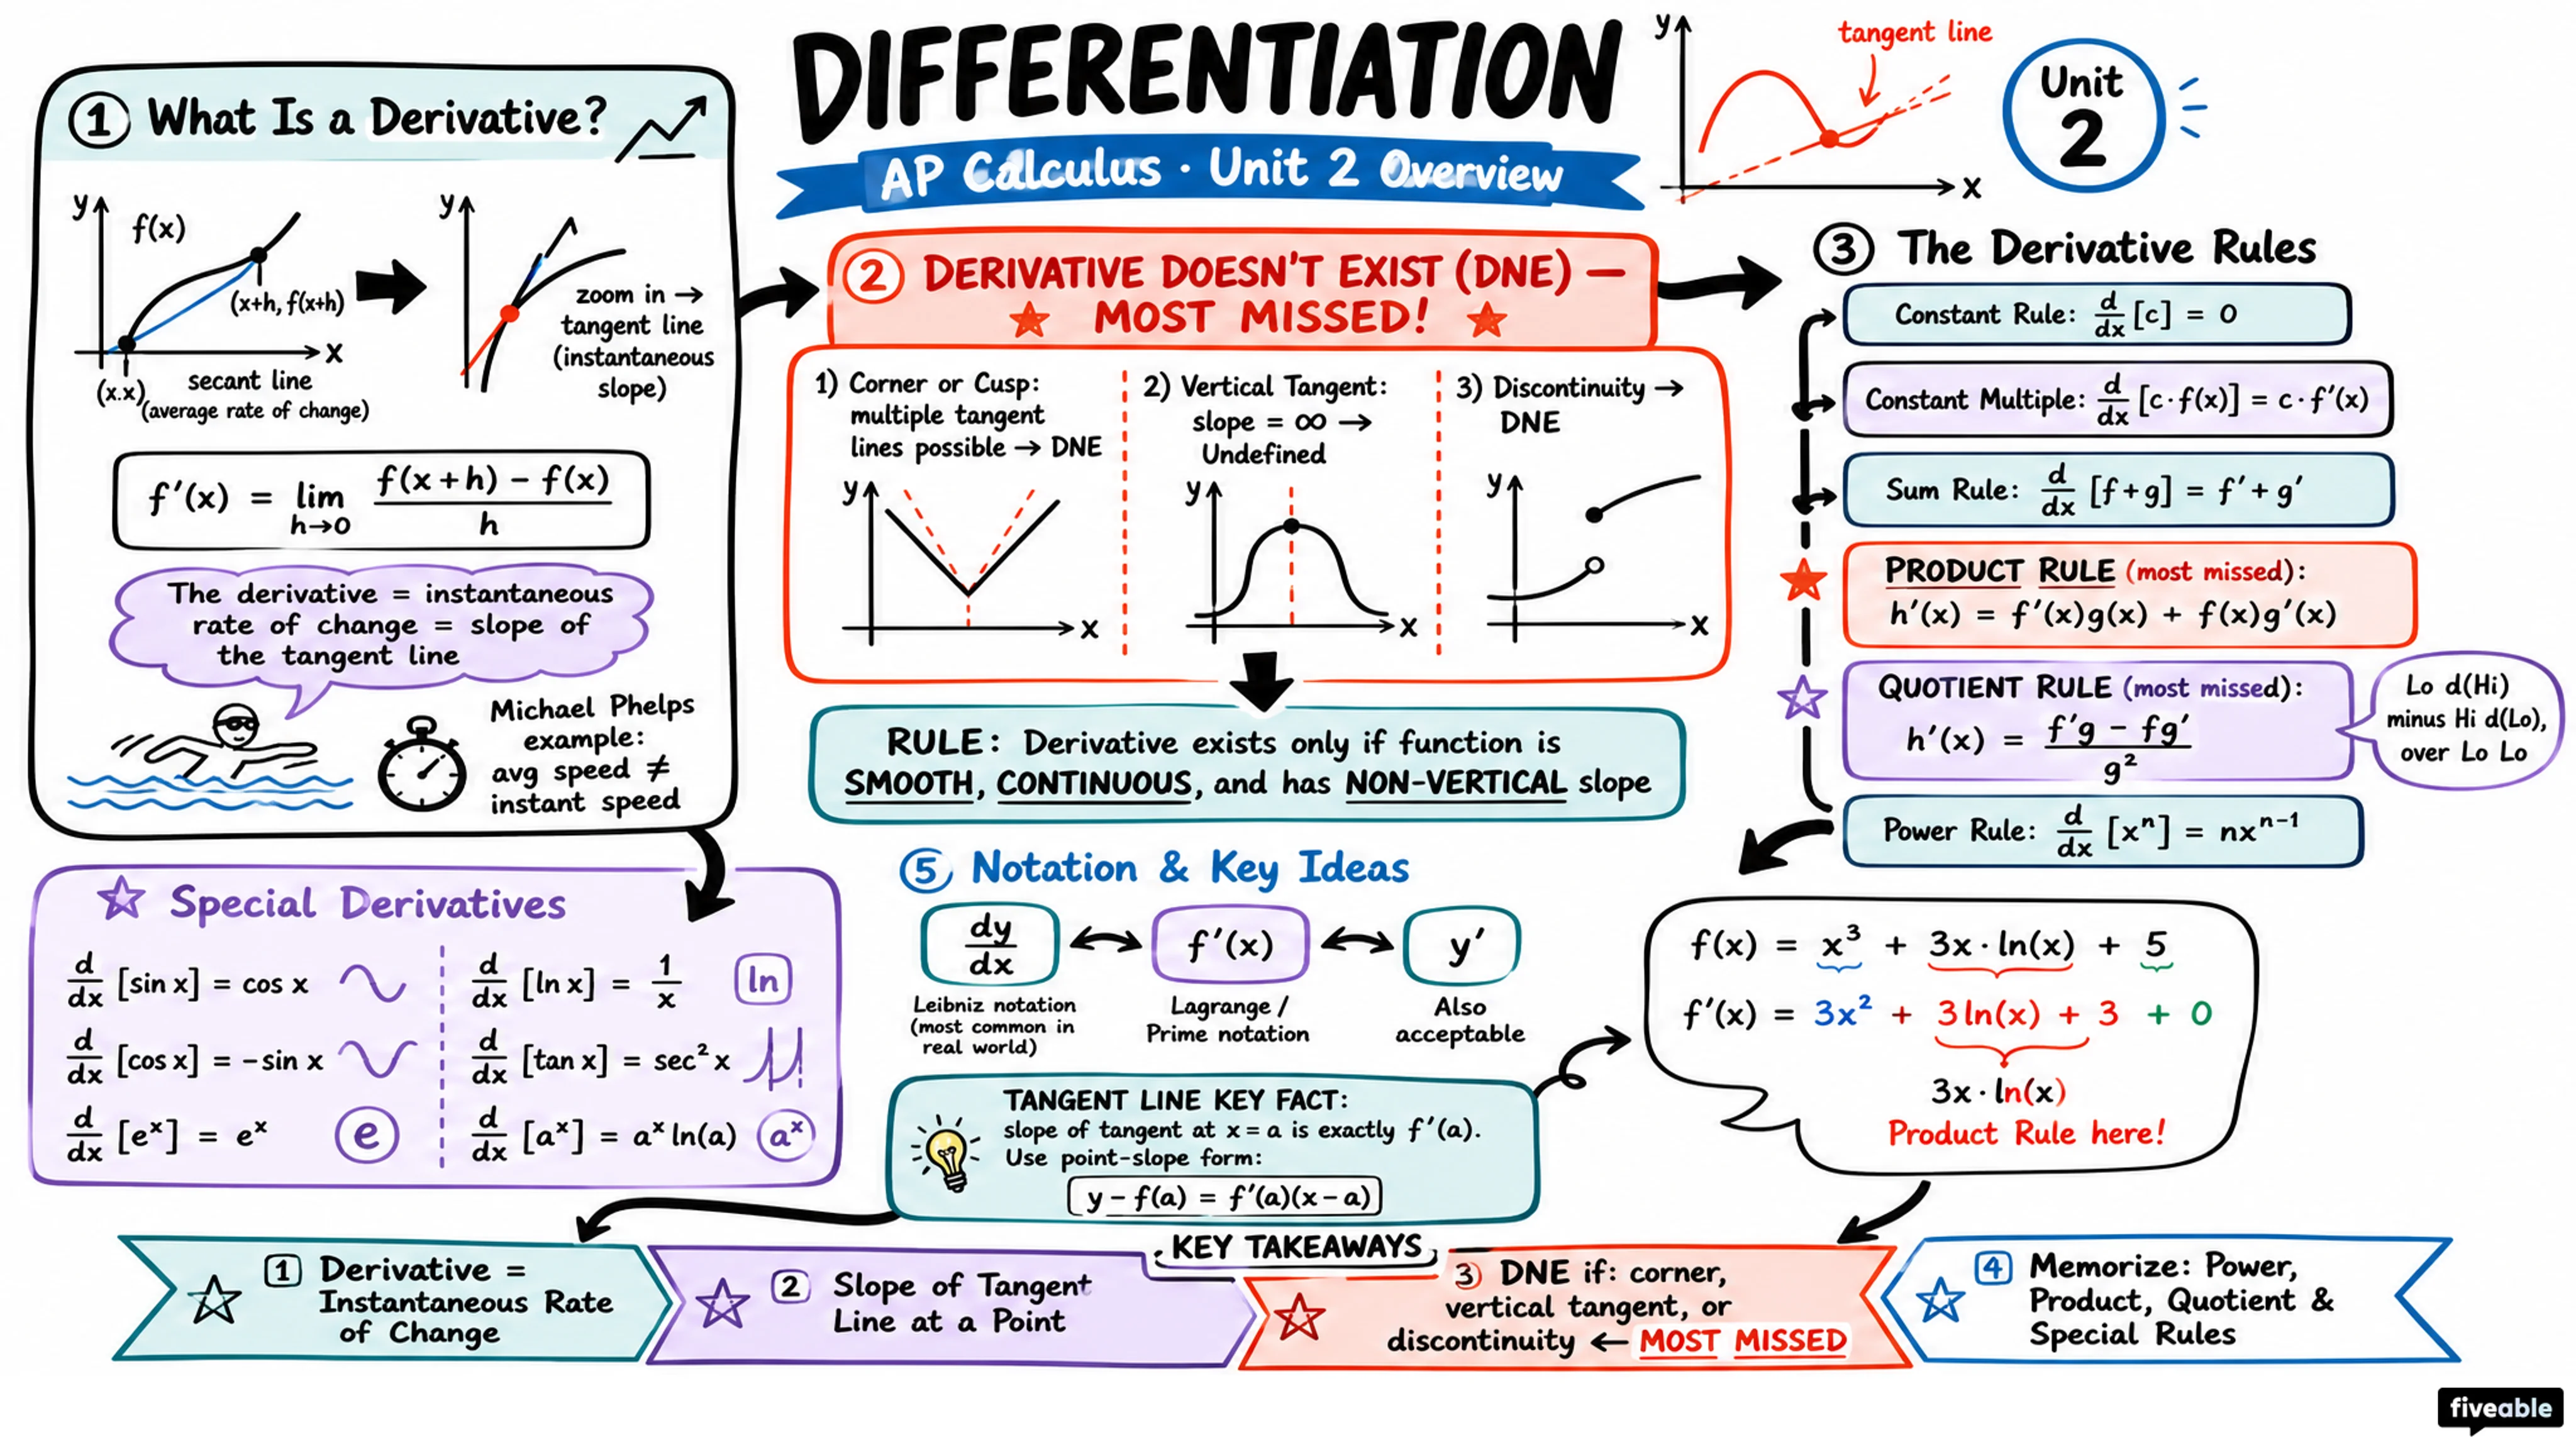 DIFFERENTIATION
AP Calculus · Unit 2 Overview
y
x
tangent line
Unit
2
① What Is a Derivative?
y
f(x)
(x+h, f(x+h))
x
(x.x)
secant line
(average rate of change)
y
zoom in →
tangent line
(instantaneous
slope)
f′(x) = lim h→0 f(x+h) − f(x) / h
The derivative = instantaneous
rate of change = slope of
the tangent line
Michael Phelps
example:
avg speed ≠
instant speed
② DERIVATIVE DOESN'T EXIST (DNE) —
MOST MISSED!
1) Corner or Cusp:
multiple tangent
lines possible → DNE
y
x
2) Vertical Tangent:
slope = ∞ →
Undefined
y
x
3) Discontinuity →
DNE
y
x
RULE: Derivative exists only if function is
SMOOTH, CONTINUOUS, and has NON-VERTICAL slope
③ The Derivative Rules
Constant Rule: d/dx [c] = 0
Constant Multiple: d/dx [c·f(x)] = c·f′(x)
Sum Rule: d/dx [f+g] = f′+g′
PRODUCT RULE (most missed):
h′(x) = f′(x)g(x) + f(x)g′(x)
QUOTIENT RULE (most missed):
h′(x) = f′g − fg′ / g²
Lo d(Hi)
minus Hi d(Lo),
over Lo Lo
Power Rule: d/dx [xⁿ] = nxⁿ⁻¹
Special Derivatives
d/dx [sin x] = cos x
d/dx [ln x] = 1/x
ln
d/dx [cos x] = −sin x
d/dx [tan x] = sec² x
d/dx [eˣ] = eˣ
e
d/dx [aˣ] = aˣ ln(a)
aˣ
⑤ Notation & Key Ideas
dy/dx
f′(x)
y′
Leibniz notation
(most common in
real world)
Lagrange /
Prime notation
Also
acceptable
TANGENT LINE KEY FACT:
slope of tangent at x = a is exactly f′(a).
Use point-slope form:
y − f(a) = f′(a)(x − a)
f(x) = x³ + 3x·ln(x) + 5
f′(x) = 3x² + 3 ln(x) + 3 + 0
3x·ln(x)
Product Rule here!
KEY TAKEAWAYS
1 Derivative =
Instantaneous Rate
of Change
2 Slope of Tangent
Line at a Point
3 DNE if: corner,
vertical tangent, or
discontinuity ← MOST MISSED
4 Memorize: Power,
Product, Quotient &
Special Rules
fiveable